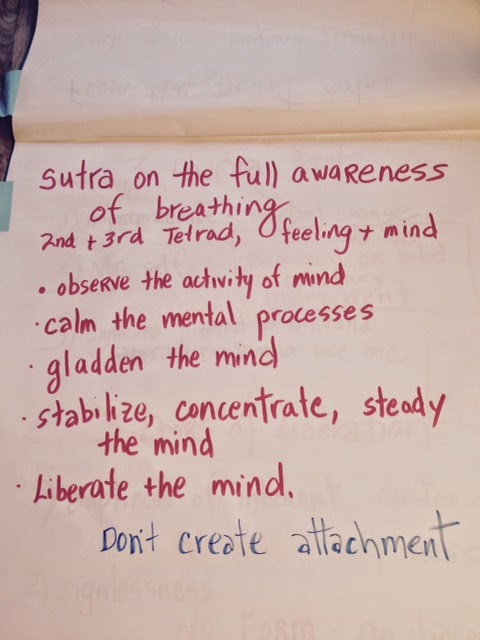 Sutra on the full awareness
of breathing
2nd + 3rd Tetrad, feeling + mind
• observe the activity of mind
· calm the mental processes
· gladden the mind
· stabilize, concentrate, steady
the mind
· Liberate the mind.
Don't create attachment
2) signlessness
No Form